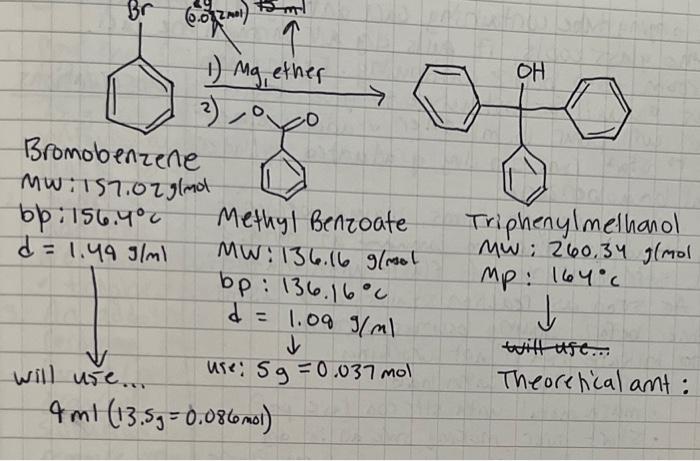 Br
2g
(0.082mol)
75 ml
1) Mg, ether
2)
O
O
OH
Bromobenzene
MW: 157.02 g/mol
bp: 156.4°C
d = 1.49 g/ml
Methyl Benzoate
MW: 136.16 g/mol
bp: 136.16°C
d = 1.09 g/ml
use: 5g = 0.037 mol
Triphenylmethanol
MW: 260.34 g/mol
Mp: 164°C
will use...
Theoretical amt:
will use...
9 ml (13.5g = 0.086mol)